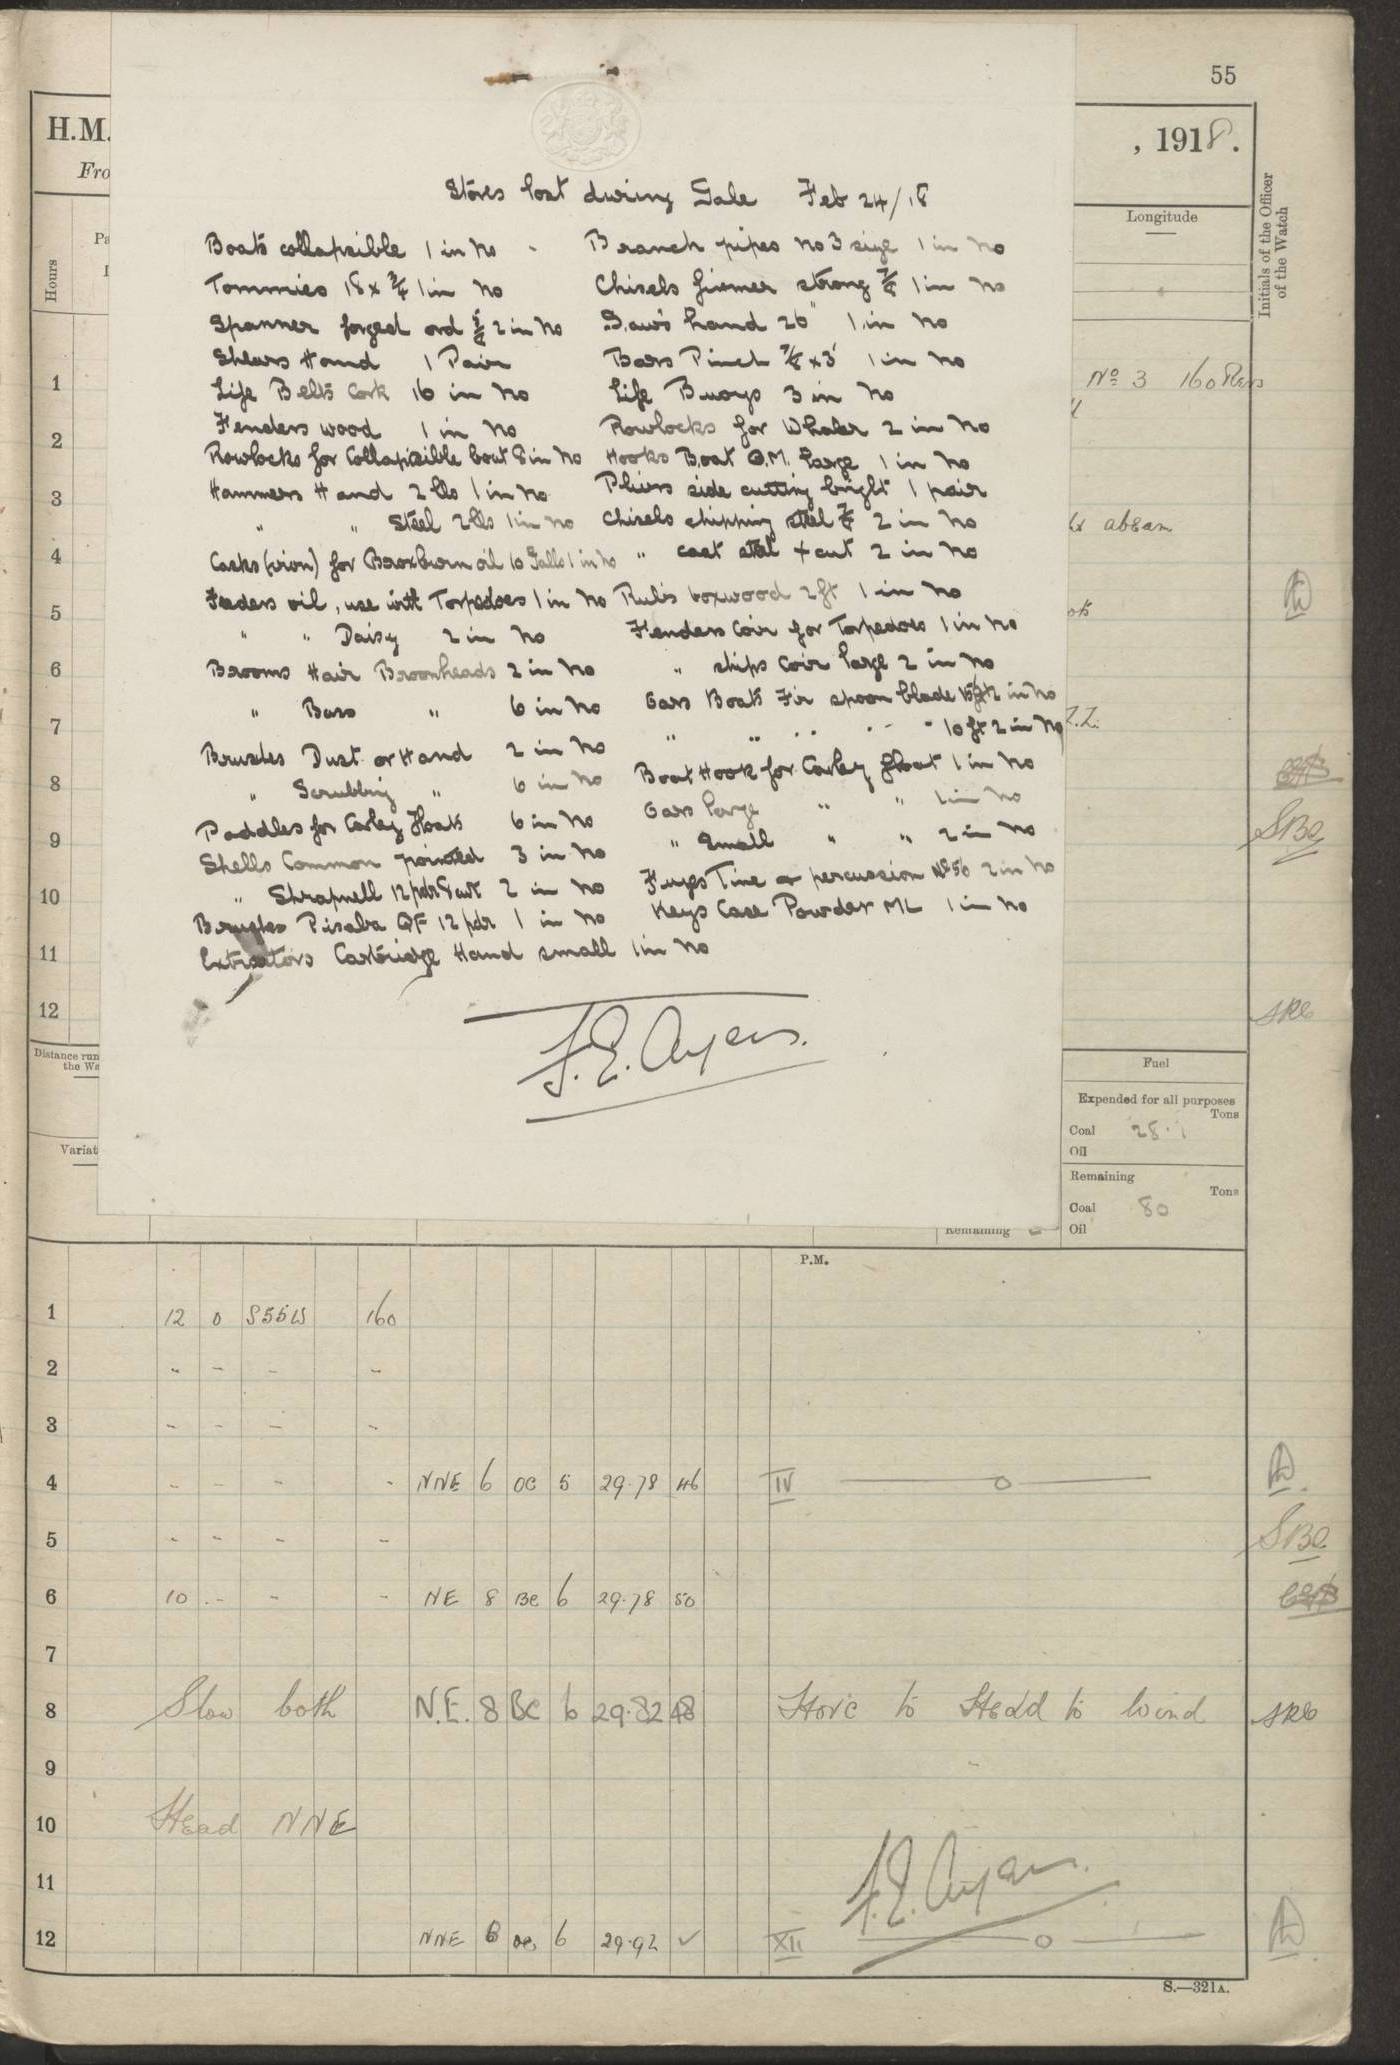 55
H.M.
, 1918.
Fro
Longitude
Initials of the Officer of the Watch
Hours
Pa
Stores lost during Gale Feb 24/18
Boats collapsible 1 in No - Branch pipes No 3 size 1 in No
Tommies 18 x 3/4 1 in No Chisels firmer strong 7/8 1 in No
Spanner forged ord 2 in No Saws hand 26" 1 in No
Shears Hand 1 Pair Bars Pinch 7/8 x 3' 1 in No
1 Life Belts Cork 16 in No Life Buoys 3 in No No 3 160 Revs
2 Fenders wood 1 in No Rowlocks for Whaler 2 in No
Rowlocks for Collapsible boat 8 in No Hooks Boat G.M. large 1 in No
3 Hammers Hand 2 lbs 1 in No Pliers side cutting bright 1 pair
" " Steel 2 lbs 1 in No Chisels chipping steel 2 in No abeam
4 Casks (iron) for Broxburn oil 10 Galls 1 in No " cast steel + cut 2 in No
5 Feeders oil, use with Torpedoes 1 in No Rules boxwood 2 ft 1 in No
" " Daisy 2 in No Fenders Coir for Torpedoes 1 in No
6 Brooms Hair Broomheads 2 in No " ships Coir large 2 in No
" Bass " 6 in No Oars Boats Fir spoon blade 2 in No
7 " " " " " 10 ft 2 in No
Brushes Dust or Hand 2 in No Boat Hook for Carley float 1 in No
8 " Scrubbing " 6 in No Oars large " " 1 in No
9 Paddles for Carley Floats 6 in No " Small " " 2 in No SBC
Shells Common pointed 3 in No Fuzes Time & percussion No 56 2 in No
10 " Shrapnell 12 pdr 8 cwt 2 in No Keys Case Powder ML 1 in No
Brushes Piasaba QF 12 pdr 1 in No
11 Extractors Cartridge Hand small 1 in No
12
F.E. Ayers.
Distance run
the Wa
Fuel
Expended for all purposes
Tons
Coal 28.1
Oil
Variat
Remaining
Tons
Coal 80
Remaining
Oil
P.M.
1 12 0 S55W 160
2 " - - -
3 - - - -
4 - - - - NNE 6 OC 5 29.78 46 IV —o—
5 - - - - SBC
6 10 - - - NE 8 BC 6 29.78 50
7
8 Slow both N.E. 8 BC 6 29.82 48 Hove to Head to Wind
9
10 Head NNE
11 F.E. Ayers.
12 NNE 6 6 29.92 ✓ XII —o—
S.—321A.